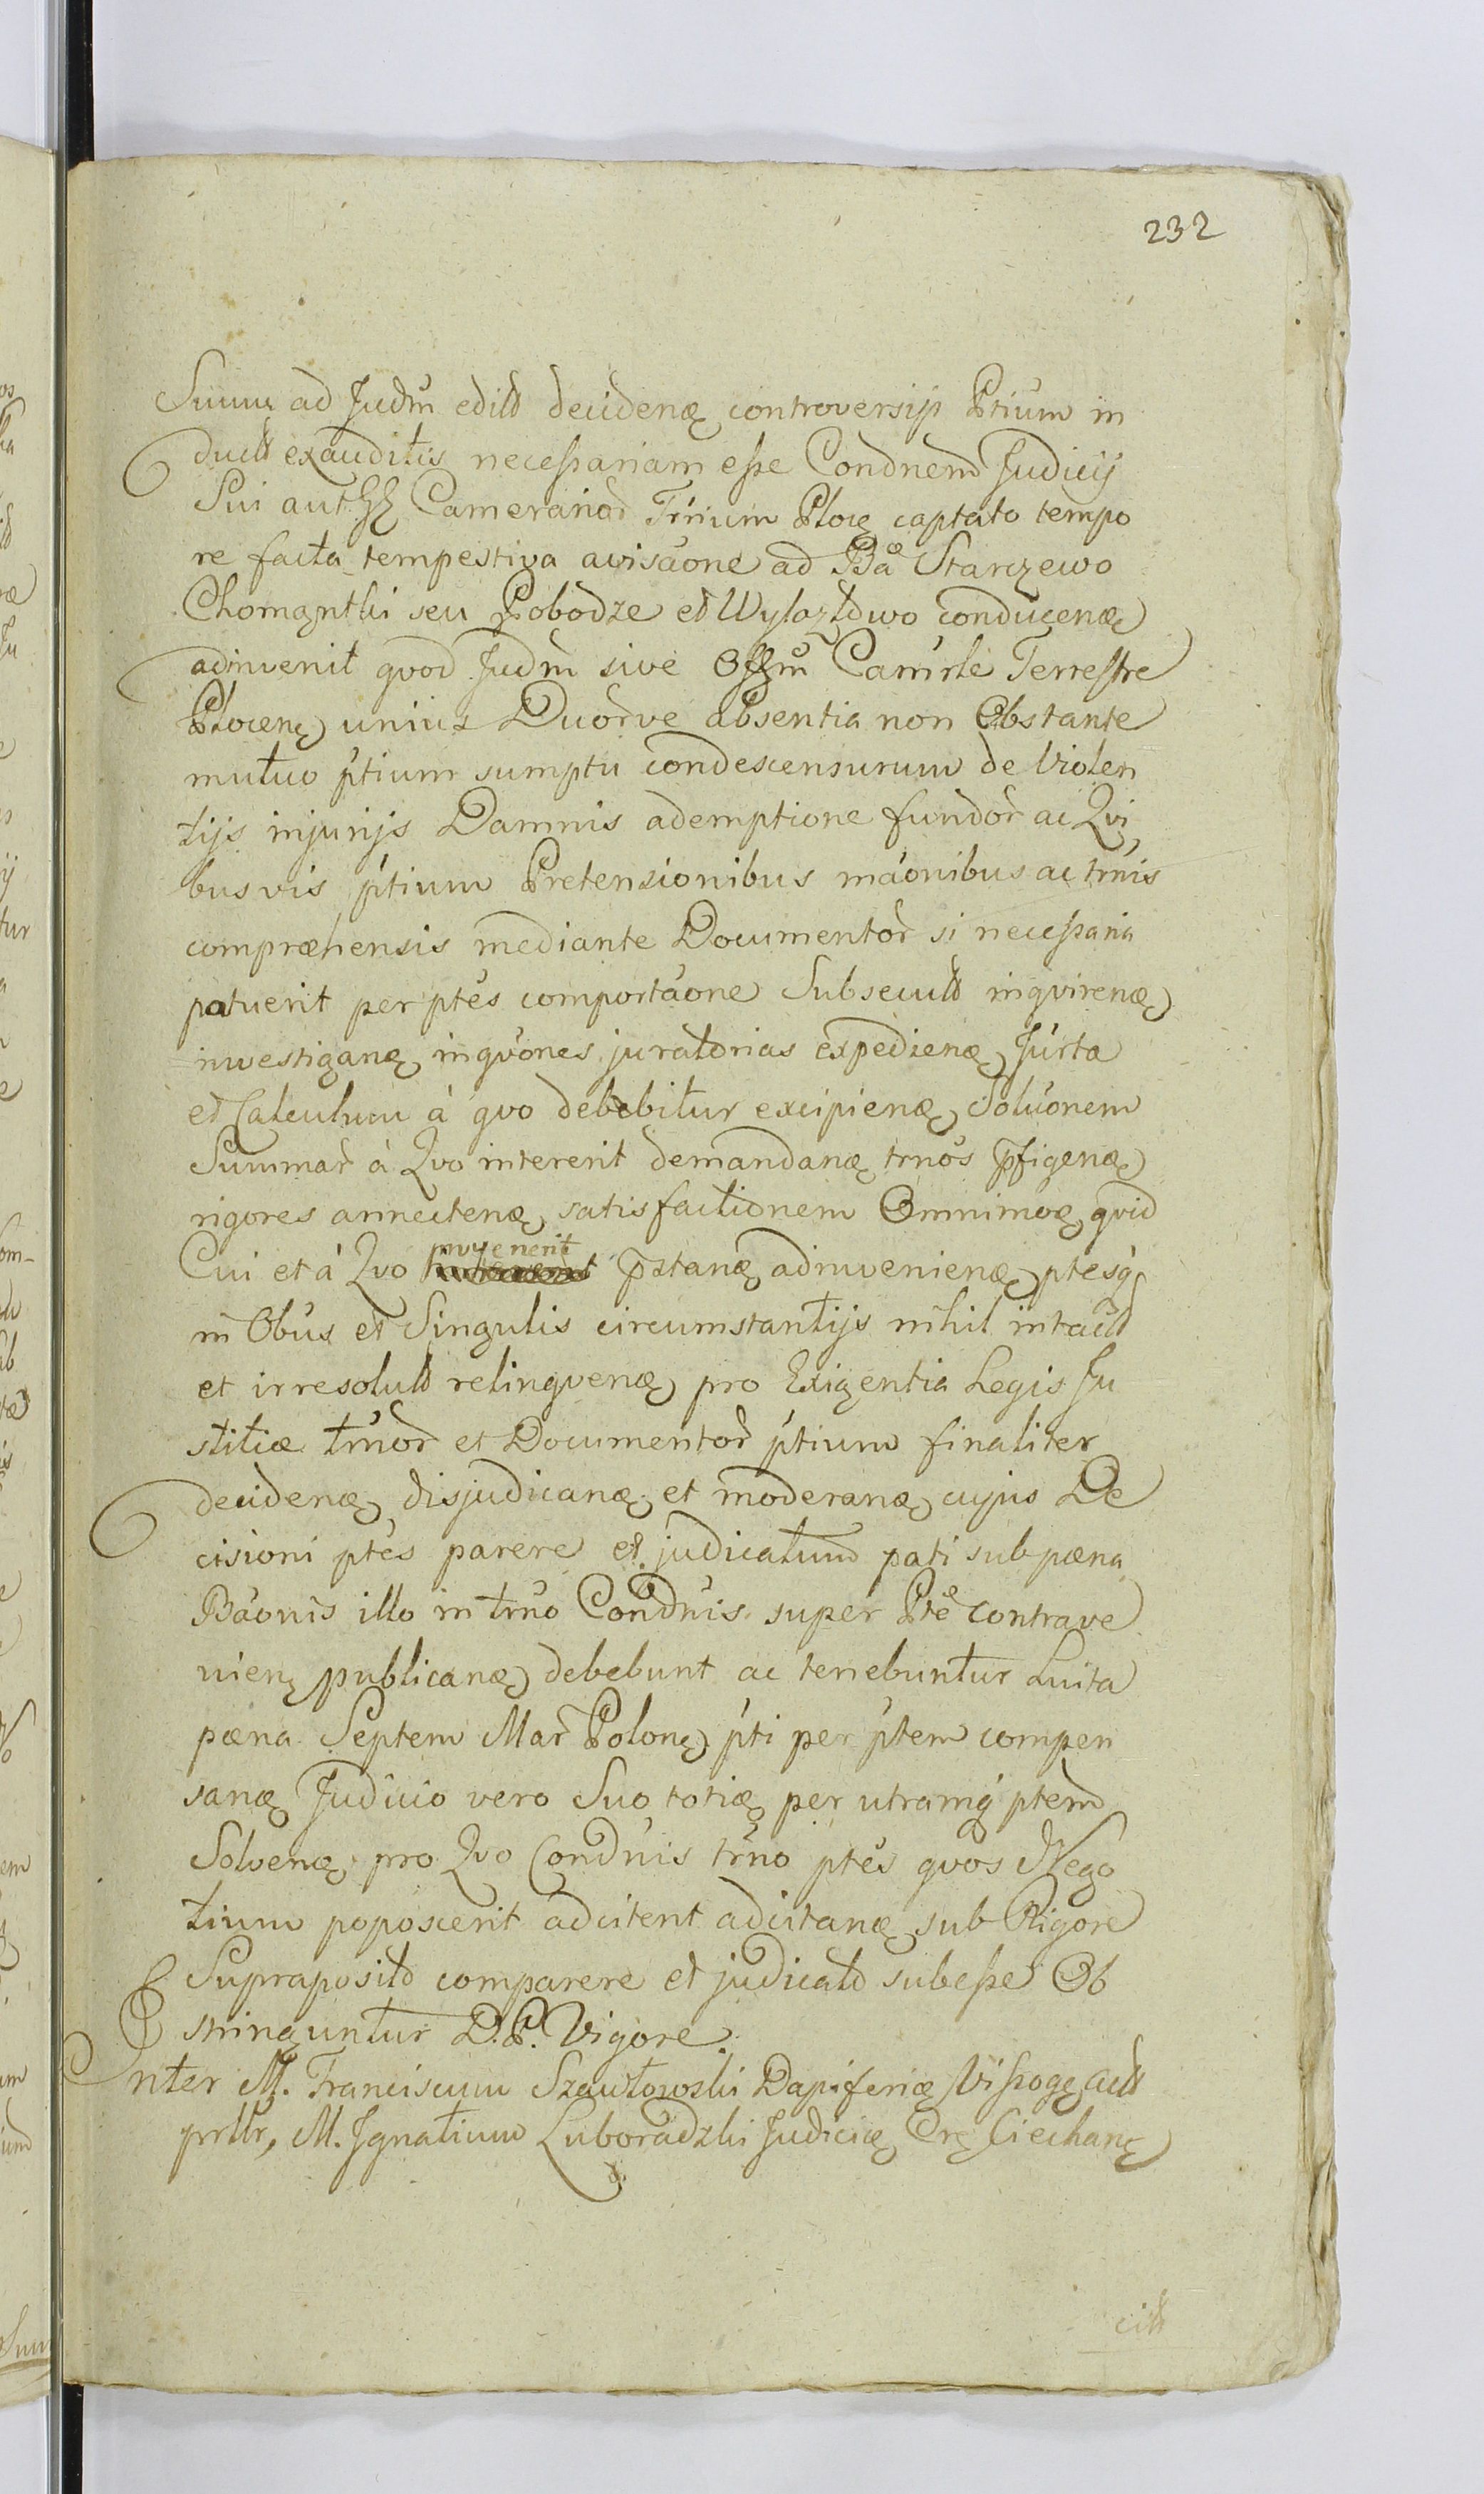 232
Suum ad Judm edito decidenæ controversijs Ptium in
duct exauditis necessariam esse Condnem Judicij
Sui aut Camerariar Trium Ploce captato tempo
re facta tempestiva avisaone ad Ba Starczewo
Chomęntki seu Pobodze et Wylazłowo conducenæ
adinvenit qvod Judm sive Offm Camrle Terrestre
Plocenę unius Duorve absentia non Obstante
mutuo ptium sumptu condescensurum de Violen
tijs injurijs Damnis ademptione fundor ac Qvi
busvis ptium Pretensionibus maonibus ac trnis
compræhensis mediante Documentor si necessaria
patuerit per ptes comportaone Subsecuto inqvirenæ
investiganæ inqvones juratorias expedienæ Jurta
et Calculum à qvo debebitur excipienæ Soluonem
Summar à Qvo intererit demandanæ trnos pfigenæ
rigores annectenæ satisfactionem Omnimoæ qvid
Cui et à Qvo invenerit pstanæ adinvenienæ ptesq
in Obus et Singulis circumstantijs nihil intacto
et irresoluto relinqvenæ pro Exigentia Legis Ju
stitiæ trnor et Documentor ptium finaliter
decidenæ disjudicanæ et moderanæ cujus De
cisioni ptes parere et judicatum pati sub pæna
Baonis illo in trno Condnis super Pte contrave
nienę publicanæ debebunt ac tenebuntur Luita
pæna Septem Mar Polonę pti per ptem compen
sanæ Judicio vero Suo totiæ per utramq ptem
Solvenæ pro Qvo Condnis trno ptes qvos Nego
tium poposcerit adcitent adcitanæ sub Rigore
Supraposito comparere et judicato subesse Ob
stringuntur D.P. Vigore.
Inter M. Franciscum Szawłowski Dapiferiæ Wissogę act
prlr, M. Jgnatium Luboradzki Judiciæ Crę Ciechanę
cit